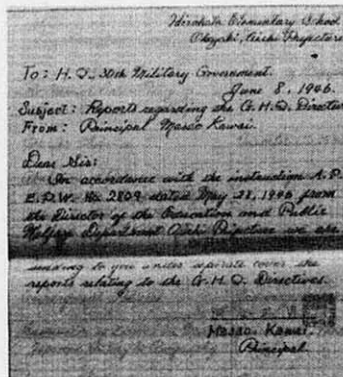 Hirohata Elementary School
Okazaki, Aichi Prefecture
To: H.Q. 30th Military Government.
June 8, 1946.
Subject: Reports regarding the G.H.Q. Directives
From: Principal Masao Kawai.
Dear Sir:
In accordance with the instruction A.P.
E.P.W. No. 2809 dated May 28, 1946 from
the Director of the Education and Public
Welfare Department Aichi Prefecture we are
sending to you under separate cover the
reports relating to the G.H.Q. Directives.
Masao Kawai.
Principal